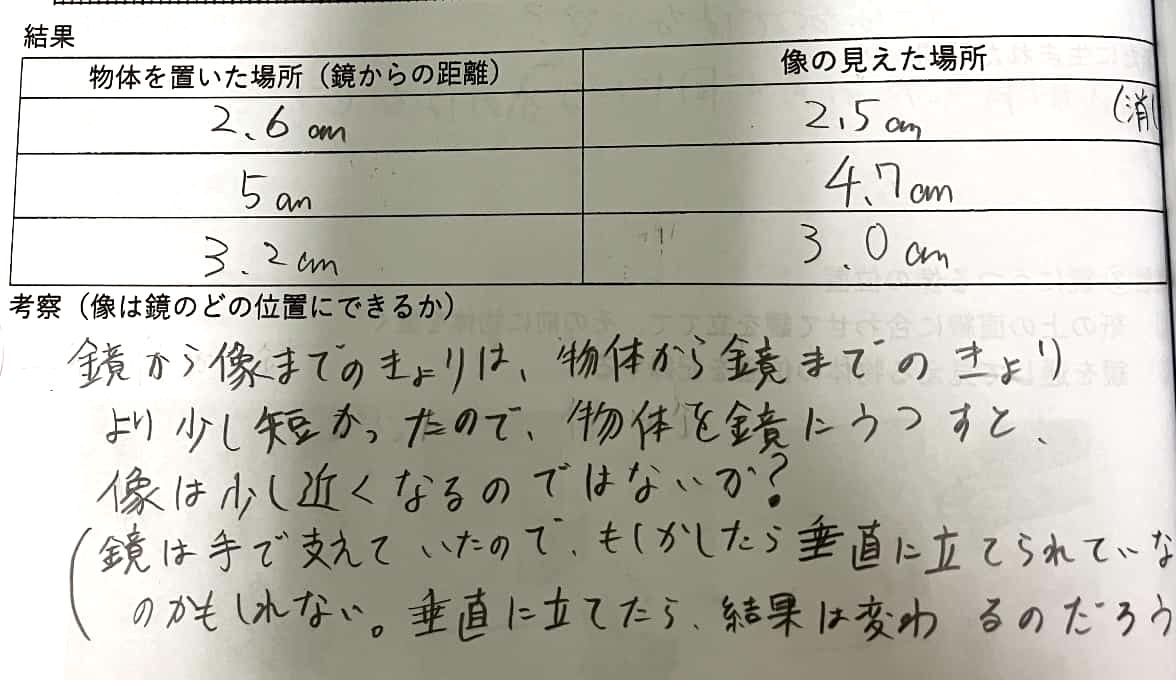 結果
物体を置いた場所（鏡からの距離） 像の見えた場所
2.6cm 2.5cm (消し
5cm 4.7cm
3.2cm 3.0cm
考察（像は鏡のどの位置にできるか）
鏡から像までのきょりは、物体から鏡までのきょり
より少し短かったので、物体を鏡にうつすと、
像は少し近くなるのではないか?
(鏡は手で支えていたので、もしかしたら垂直に立てられていな
のかもしれない。垂直に立てたら、結果は変わるのだろう